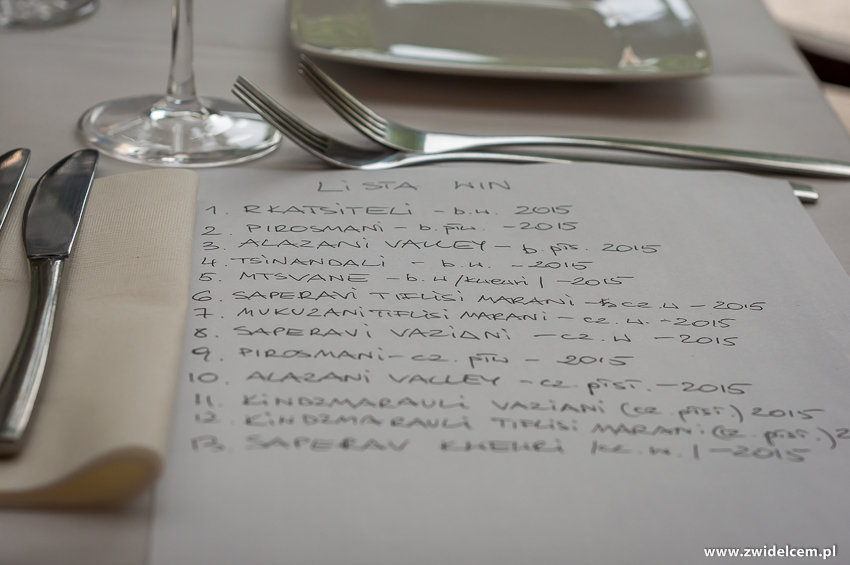 LISTA WIN
1. RKATSITELI - b.w. 2015
2. PIROSMANI - b. płw - 2015
3. ALAZANI VALLEY - b. płs. 2015
4. TSINANDALI - b.w. - 2015
5. MTSVANE - b.w/khehri/ - 2015
6. SAPERAVI TIFLISI MARANI - cz.w - 2015
7. MUKUZANI TIFLISI MARANI - cz.w. - 2015
8. SAPERAVI VAZIANI - cz.w - 2015
9. PIROSMANI - cz. płw - 2015
10. ALAZANI VALLEY - cz. płsł. - 2015
11. KINDZMARAULI VAZIANI (cz. płsł.) 2015
12. KINDZMARAULI TIFLISI MARANI (cz. płsł.) 2
13. SAPERAV KHEHRI /cz.w./ - 2015
www.zwidelcem.pl